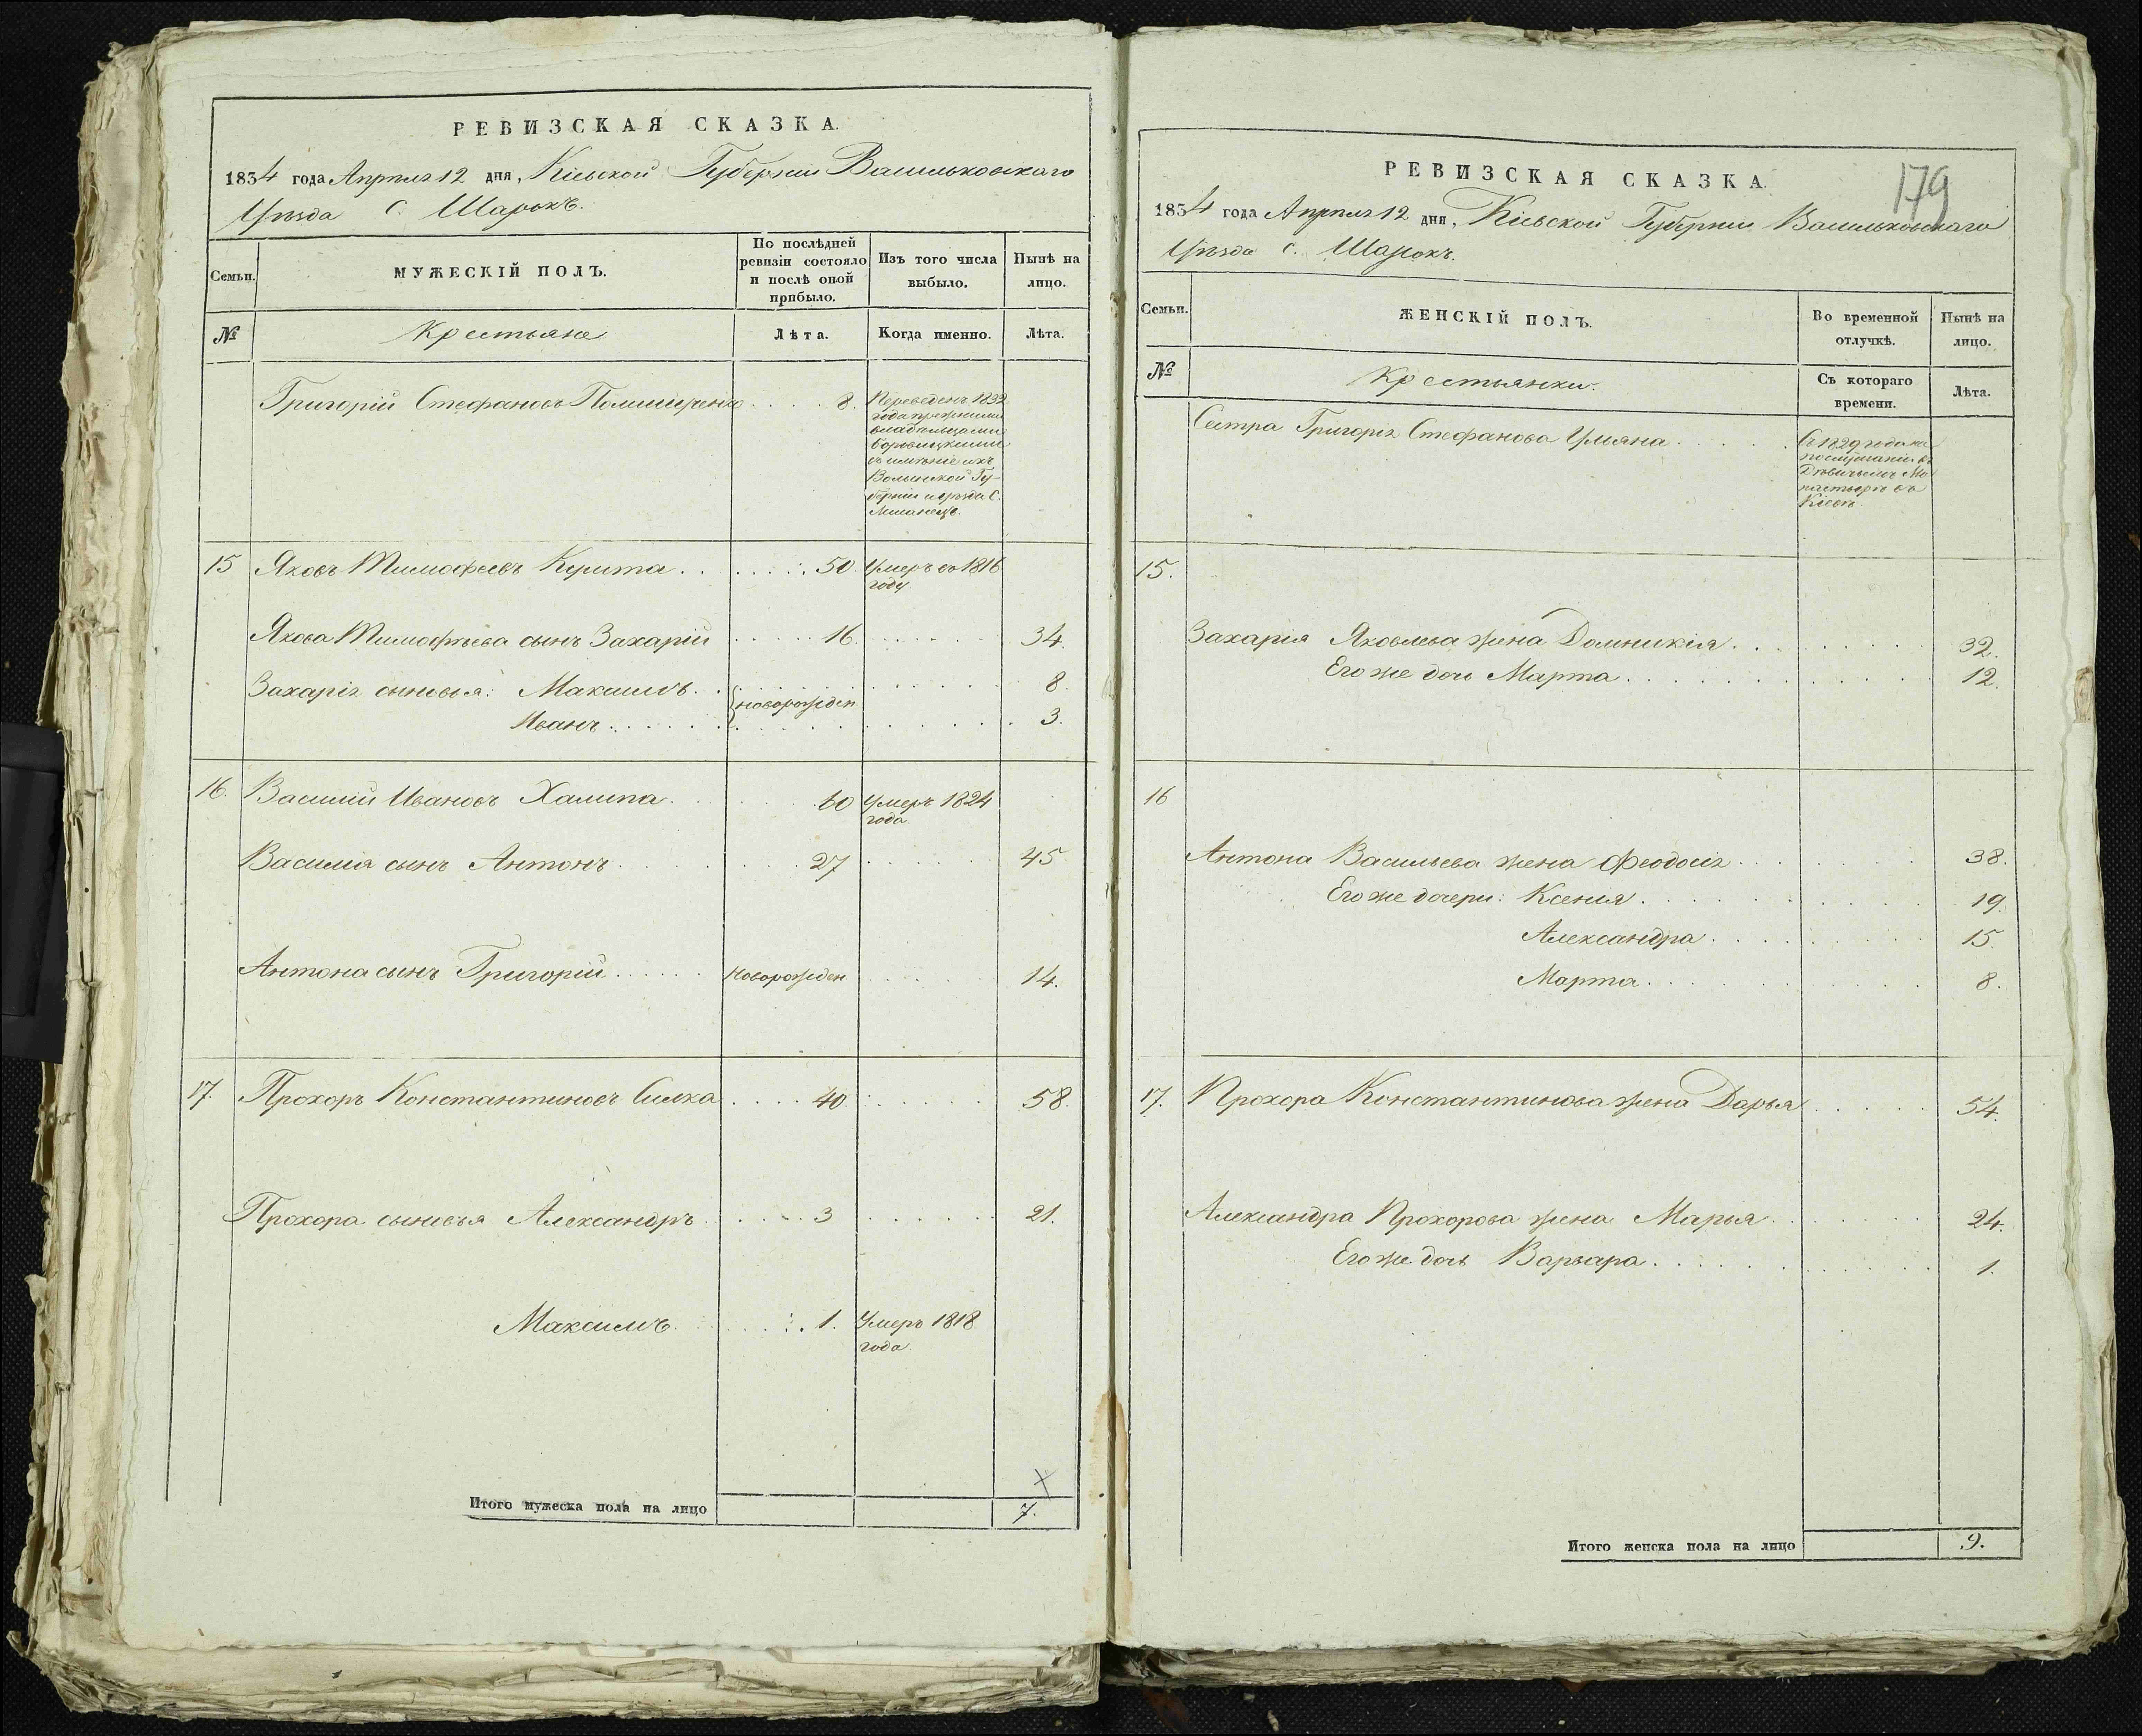 РЕВИЗСКАЯ СКАЗКА.
1834 года Апреля 12 дня, Кіевской Губерніи Васильковскаго
Уѣзда С. Шарокъ.
Семьи.
МУЖЕСКІЙ ПОЛЪ.
По послѣдней
ревизіи состояло
и послѣ оной
прибыло.
Изъ того числа
выбыло.
Нынѣ на
лицо.
№
Крестьяне
Лѣта.
Когда именно.
Лѣта.
Григорій Стефановъ 8.
Переведенъ 1832
года прежними
владельцами
въ имѣніе ихъ
Волынской Гу-
берніи Уѣзда С.
15 Яковъ Тимофеевъ Курита 50 Умеръ въ 1816
году
Якова Тимофѣева сынъ Захарій 16. 34.
Захарія сыновья: Максимъ 8.
новорожден
Иванъ 3.
16. Василий Ивановъ Халипа 60 Умеръ 1824
года
Василия сынъ Антонъ 27 45
Антона сынъ Григорій новорожден 14.
17. Прохоръ Константиновъ Силка 40 58.
Прохора сыновья Александръ 3 21.
Максимъ 1. Умеръ 1818
года.
Итого мужеска пола на лицо 7.
179
РЕВИЗСКАЯ СКАЗКА.
1834 года Апреля 12 дня, Кіевской Губерніи Васильковскаго
Уѣзда С. Шарокъ.
Семьи.
ЖЕНСКІЙ ПОЛЪ.
Во временной
отлучкѣ.
Нынѣ на
лицо.
№
Крестьянки.
Съ котораго
времени.
Лѣта.
Сестра Григорія Стефанова Ульяна
Съ 1829 года на
послушаніи въ
Дѣвичьемъ Мо
настырѣ въ
Кіевѣ
15.
Захарія Яковлева жена Домникія 32.
Его же дочь Марта 12.
16
Антона Васильева жена Феодосія 38.
Его же дочери: Ксения 19.
Александра 15.
Марта 8.
17. Прохора Константинова жена Дарья 54.
Александра Прохорова жена Марья 24.
Его же дочь Варвара 1.
Итого женска пола на лицо 9.